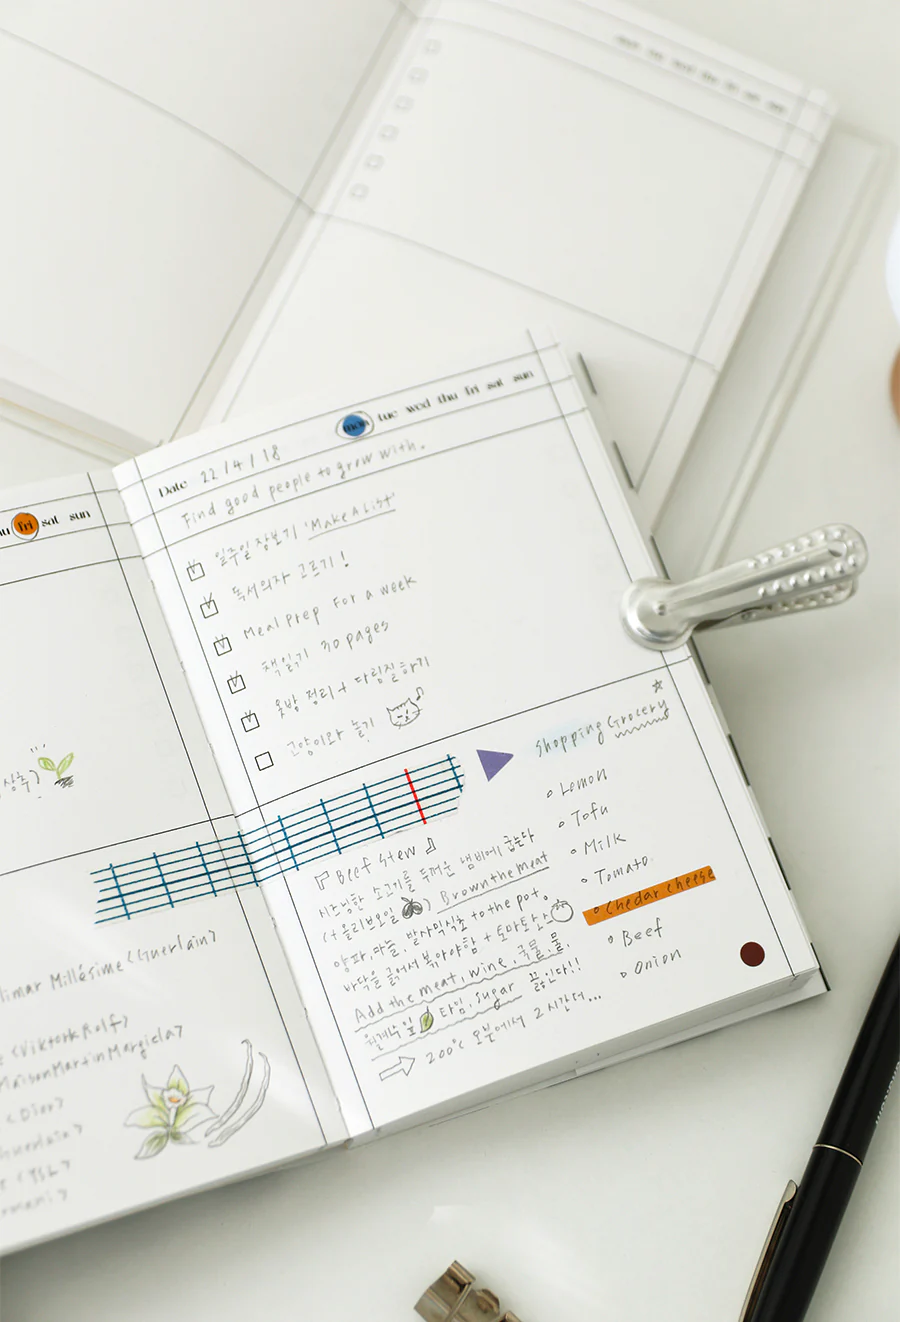 fri sat sun
상추)
limar Millésime <Guerlain>
<Viktor&Rolf>
MaisonMartinMargiela>
<Dior>
Guerlain>
<YSL>
Date 22/4/18
mon tue wed thu fri sat sun
Find good people to grow with.
일주일 장보기 'Make A List'
독서의자 고르기!
Meal prep For a week
책읽기 30 pages
옷방 정리 + 다림질하기
고양이와 놀기
『Beef Stew』
시즈닝한 소고기를 두꺼운 냄비에 굽는다
(+올리브오일) Brown the meat
양파, 마늘, 발사믹식초 to the pot.
바닥을 긁어서 볶아야함 + 토마토소
Add the meat, wine, 국물, 물,
월계수잎 타임, sugar 끓인다!!
200°C 오븐에서 2시간더...
Shopping Grocery
Lemon
Tofu
Milk
Tomato
Chedar cheese
Beef
Onion